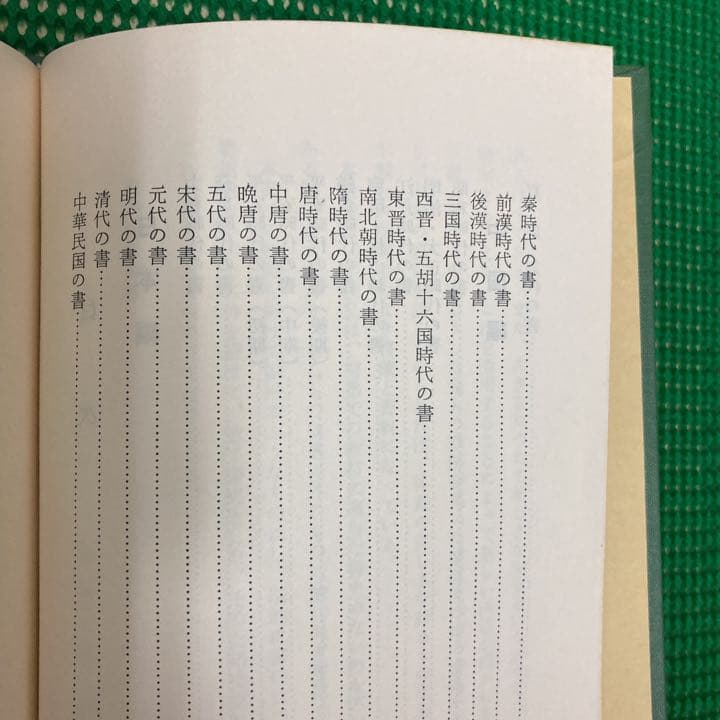 秦時代の書
前漢時代の書
後漢時代の書
三国時代の書
西晋・五胡十六国時代の書
東晋時代の書
南北朝時代の書
隋時代の書
唐時代の書
中唐の書
晩唐の書
五代の書
宋代の書
元代の書
明代の書
清代の書
中華民国の書